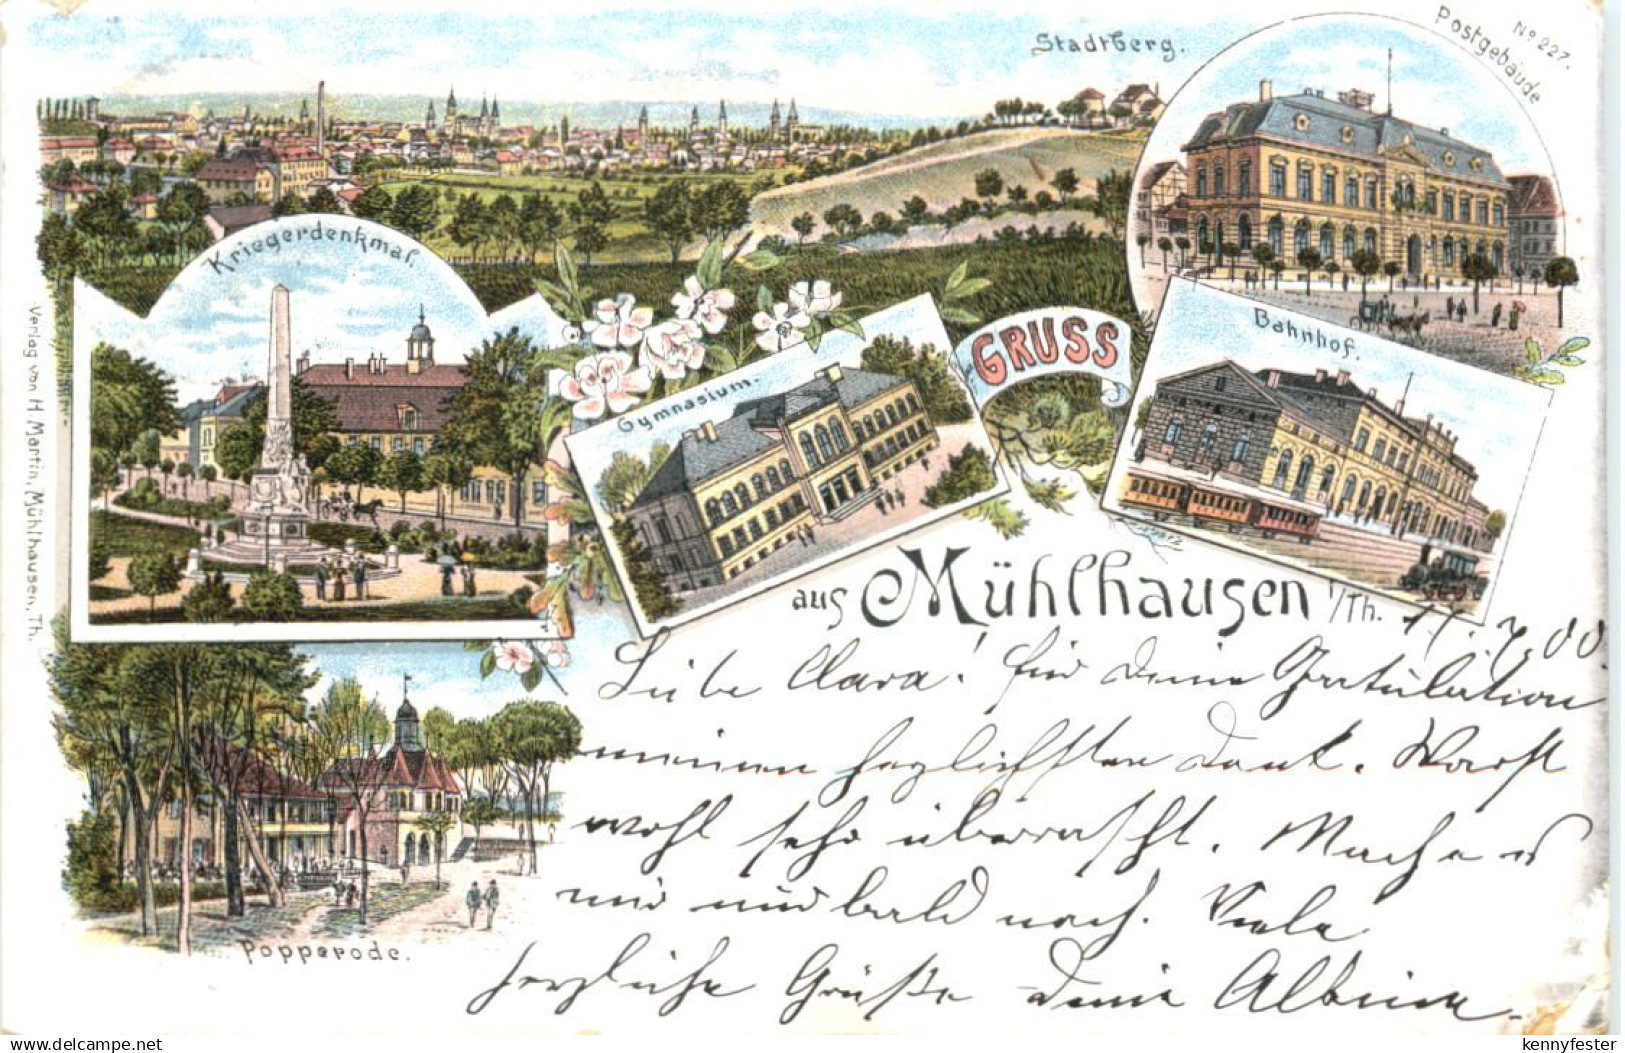 Stadtberg.
Postgebäude
No 227.
Kriegerdenkmal.
Gymnasium.
GRUSS
Bahnhof.
aus Mühlhausen i/Th.
Verlag von H. Martin, Mühlhausen, Th.
Popperode.
11.7.00.
Liebe Clara! Für Deine Gratulation
meinen herzlichsten Dank. Warst
wohl sehr überrascht. Mache es
mir nur bald nach. Viele
herzliche Grüße Deine Albine.
kennyfester